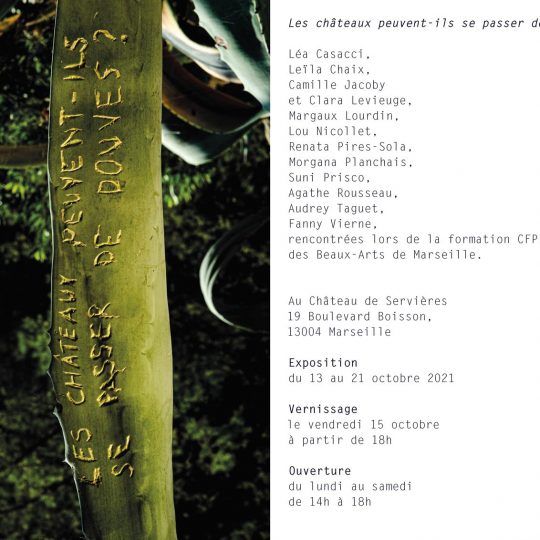 LES CHÂTEAUX PEUVENT-ILS
SE PASSER DE DOUVES?
Les châteaux peuvent-ils se passer de
Léa Casacci,
Leïla Chaix,
Camille Jacoby
et Clara Levieuge,
Margaux Lourdin,
Lou Nicollet,
Renata Pires-Sola,
Morgana Planchais,
Suni Prisco,
Agathe Rousseau,
Audrey Taguet,
Fanny Vierne,
rencontrées lors de la formation CFP
des Beaux-Arts de Marseille.
Au Château de Servières
19 Boulevard Boisson,
13004 Marseille
Exposition
du 13 au 21 octobre 2021
Vernissage
le vendredi 15 octobre
à partir de 18h
Ouverture
du lundi au samedi
de 14h à 18h